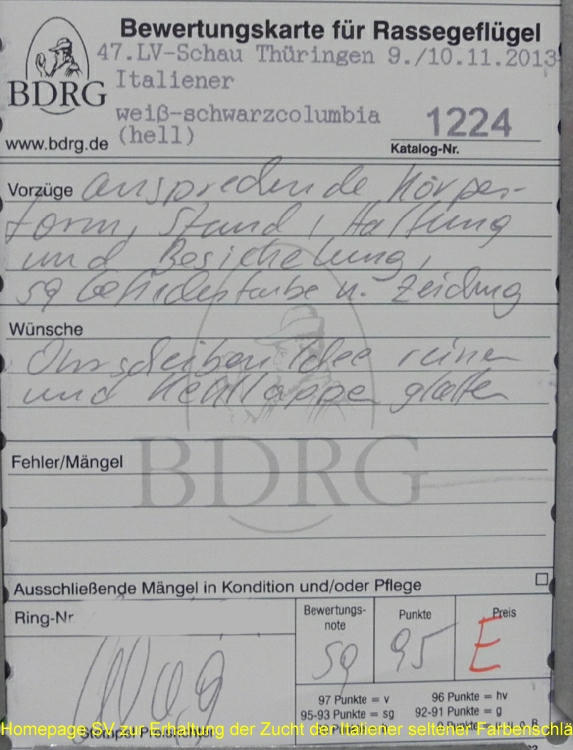 Bewertungskarte für Rassegeflügel
47.LV-Schau Thüringen 9./10.11.2013
Italiener
BDRG
weiß-schwarzcolumbia
(hell)
1224
www.bdrg.de
Katalog-Nr.
Vorzüge ansprechende Körper-
form, Stand, Haltung
und Besichelung,
sg Gefiederfarbe u. Zeichnung
Wünsche
Ohrscheiben Idee reiner
und Kehllappen glatter
Fehler/Mängel
BDRG
Ausschließende Mängel in Kondition und/oder Pflege
Ring-Nr
Bewertungs-
note
Punkte
Preis
sg
95
E
97 Punkte = v
96 Punkte = hv
95-93 Punkte = sg
92-91 Punkte = g
Homepage SV zur Erhaltung der Zucht der Italiener seltener Farbenschlä